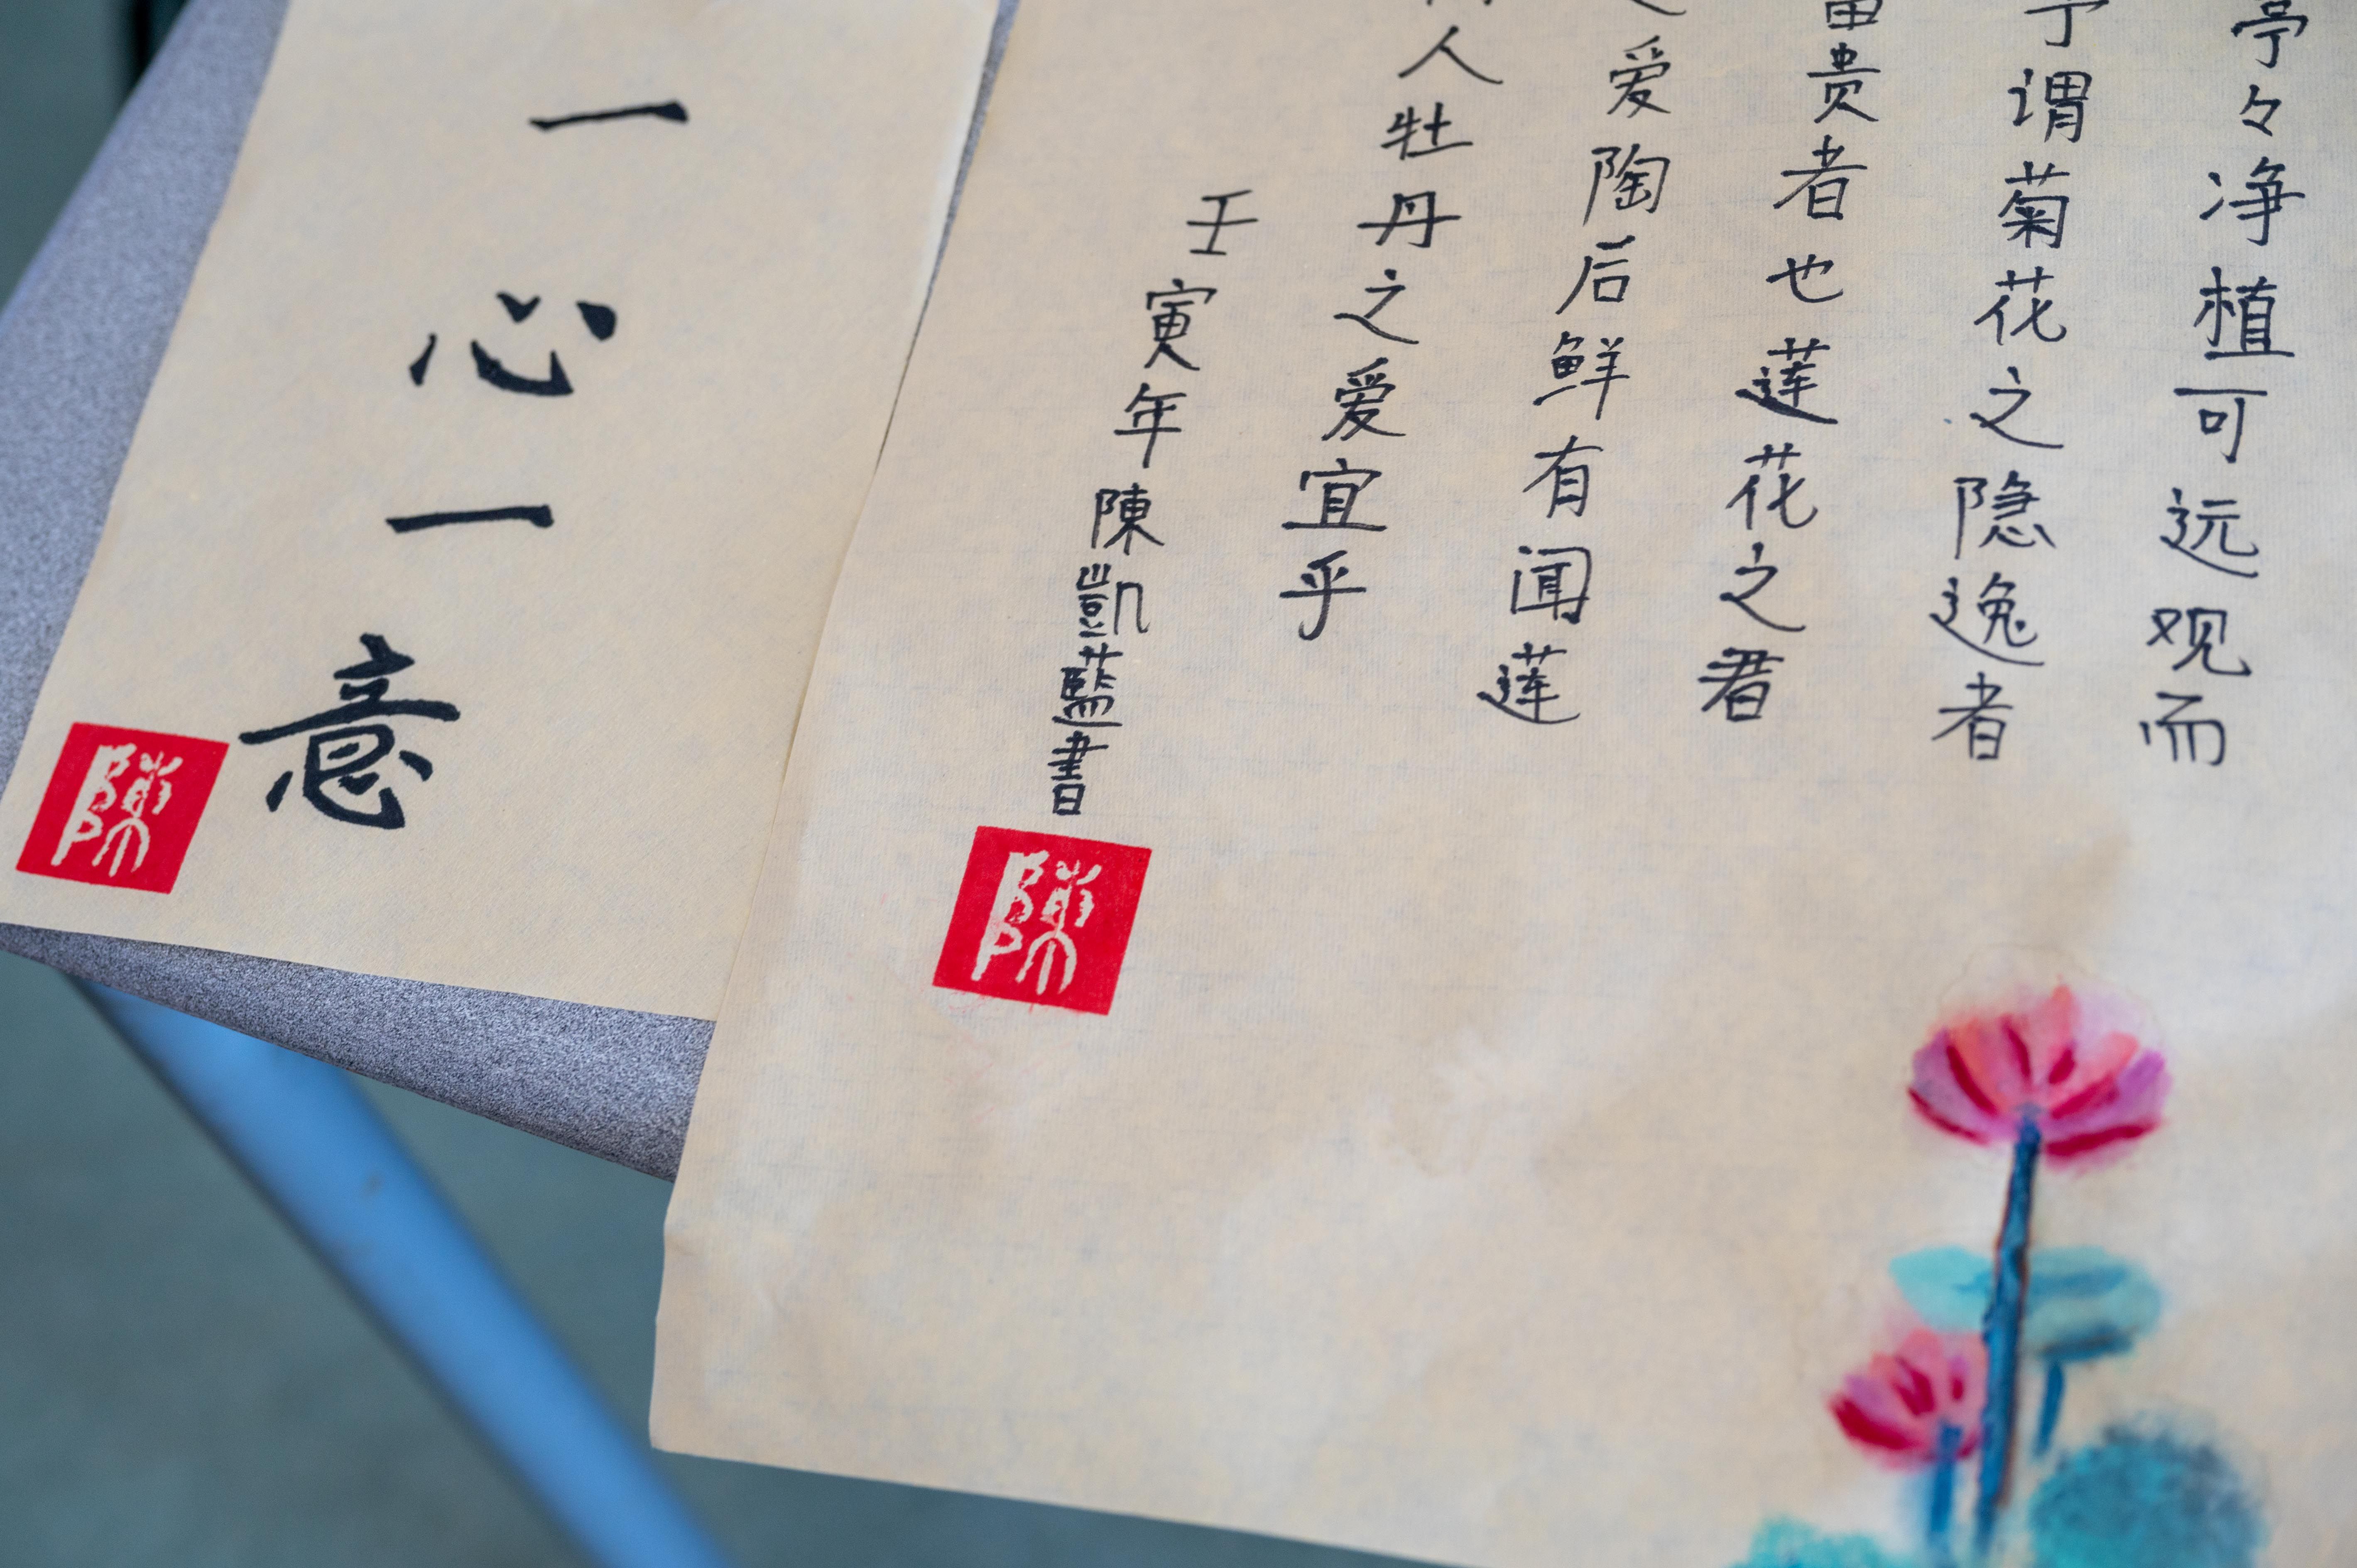 亭々净植可远观而
予谓菊花之隐逸者
贵者也莲花之君
爱陶后鲜有闻莲
人牡丹之爱宜乎
壬寅年陳凱藍書
陳
一心一意
陳